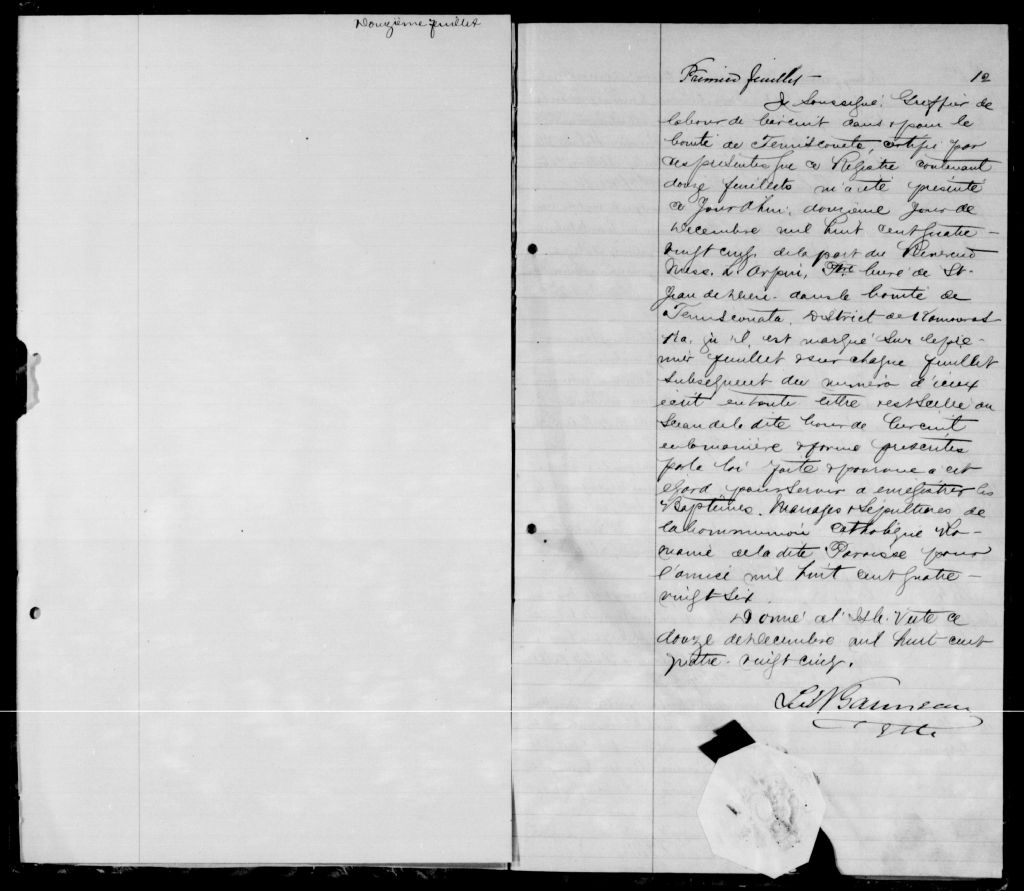 Douzième feuillet
Premier feuillet - 12
Je Soussigné, Greffier de
la Cour de Circuit dans & pour le
Comté de Temiscouata, certifie par
des présentes que ce Registre contenant
douze feuillets m'a été présenté
ce Jourd'hui, douzième Jour de
Décembre mil huit cent quatre-
vingt cinq, de la part du Reverend
Mess. L. Arpin, Ptre Curé de St-
Jean de Dieu, dans le Comté de
Temiscouata, District de Kamouras
Ka, qu'il est marqué sur le pre-
mier feuillet & sur chaque feuillet
subséquent du numéro d'iceux
écrit en toute lettre & est scellé du
Sceau de la dite Cour de Circuit
en la manière & forme prescrites
par la loi faite & pourvue à cet
égard pour servir à enregistrer les
Baptêmes, Mariages & Sépultures de
la Communion Catholique Ro-
maine de la dite Paroisse pour
l'année mil huit cent quatre-
vingt six.
Donné à l'Isle Verte ce
douze de Décembre mil huit cent
quatre-vingt cinq.
Ls N Gauvreau